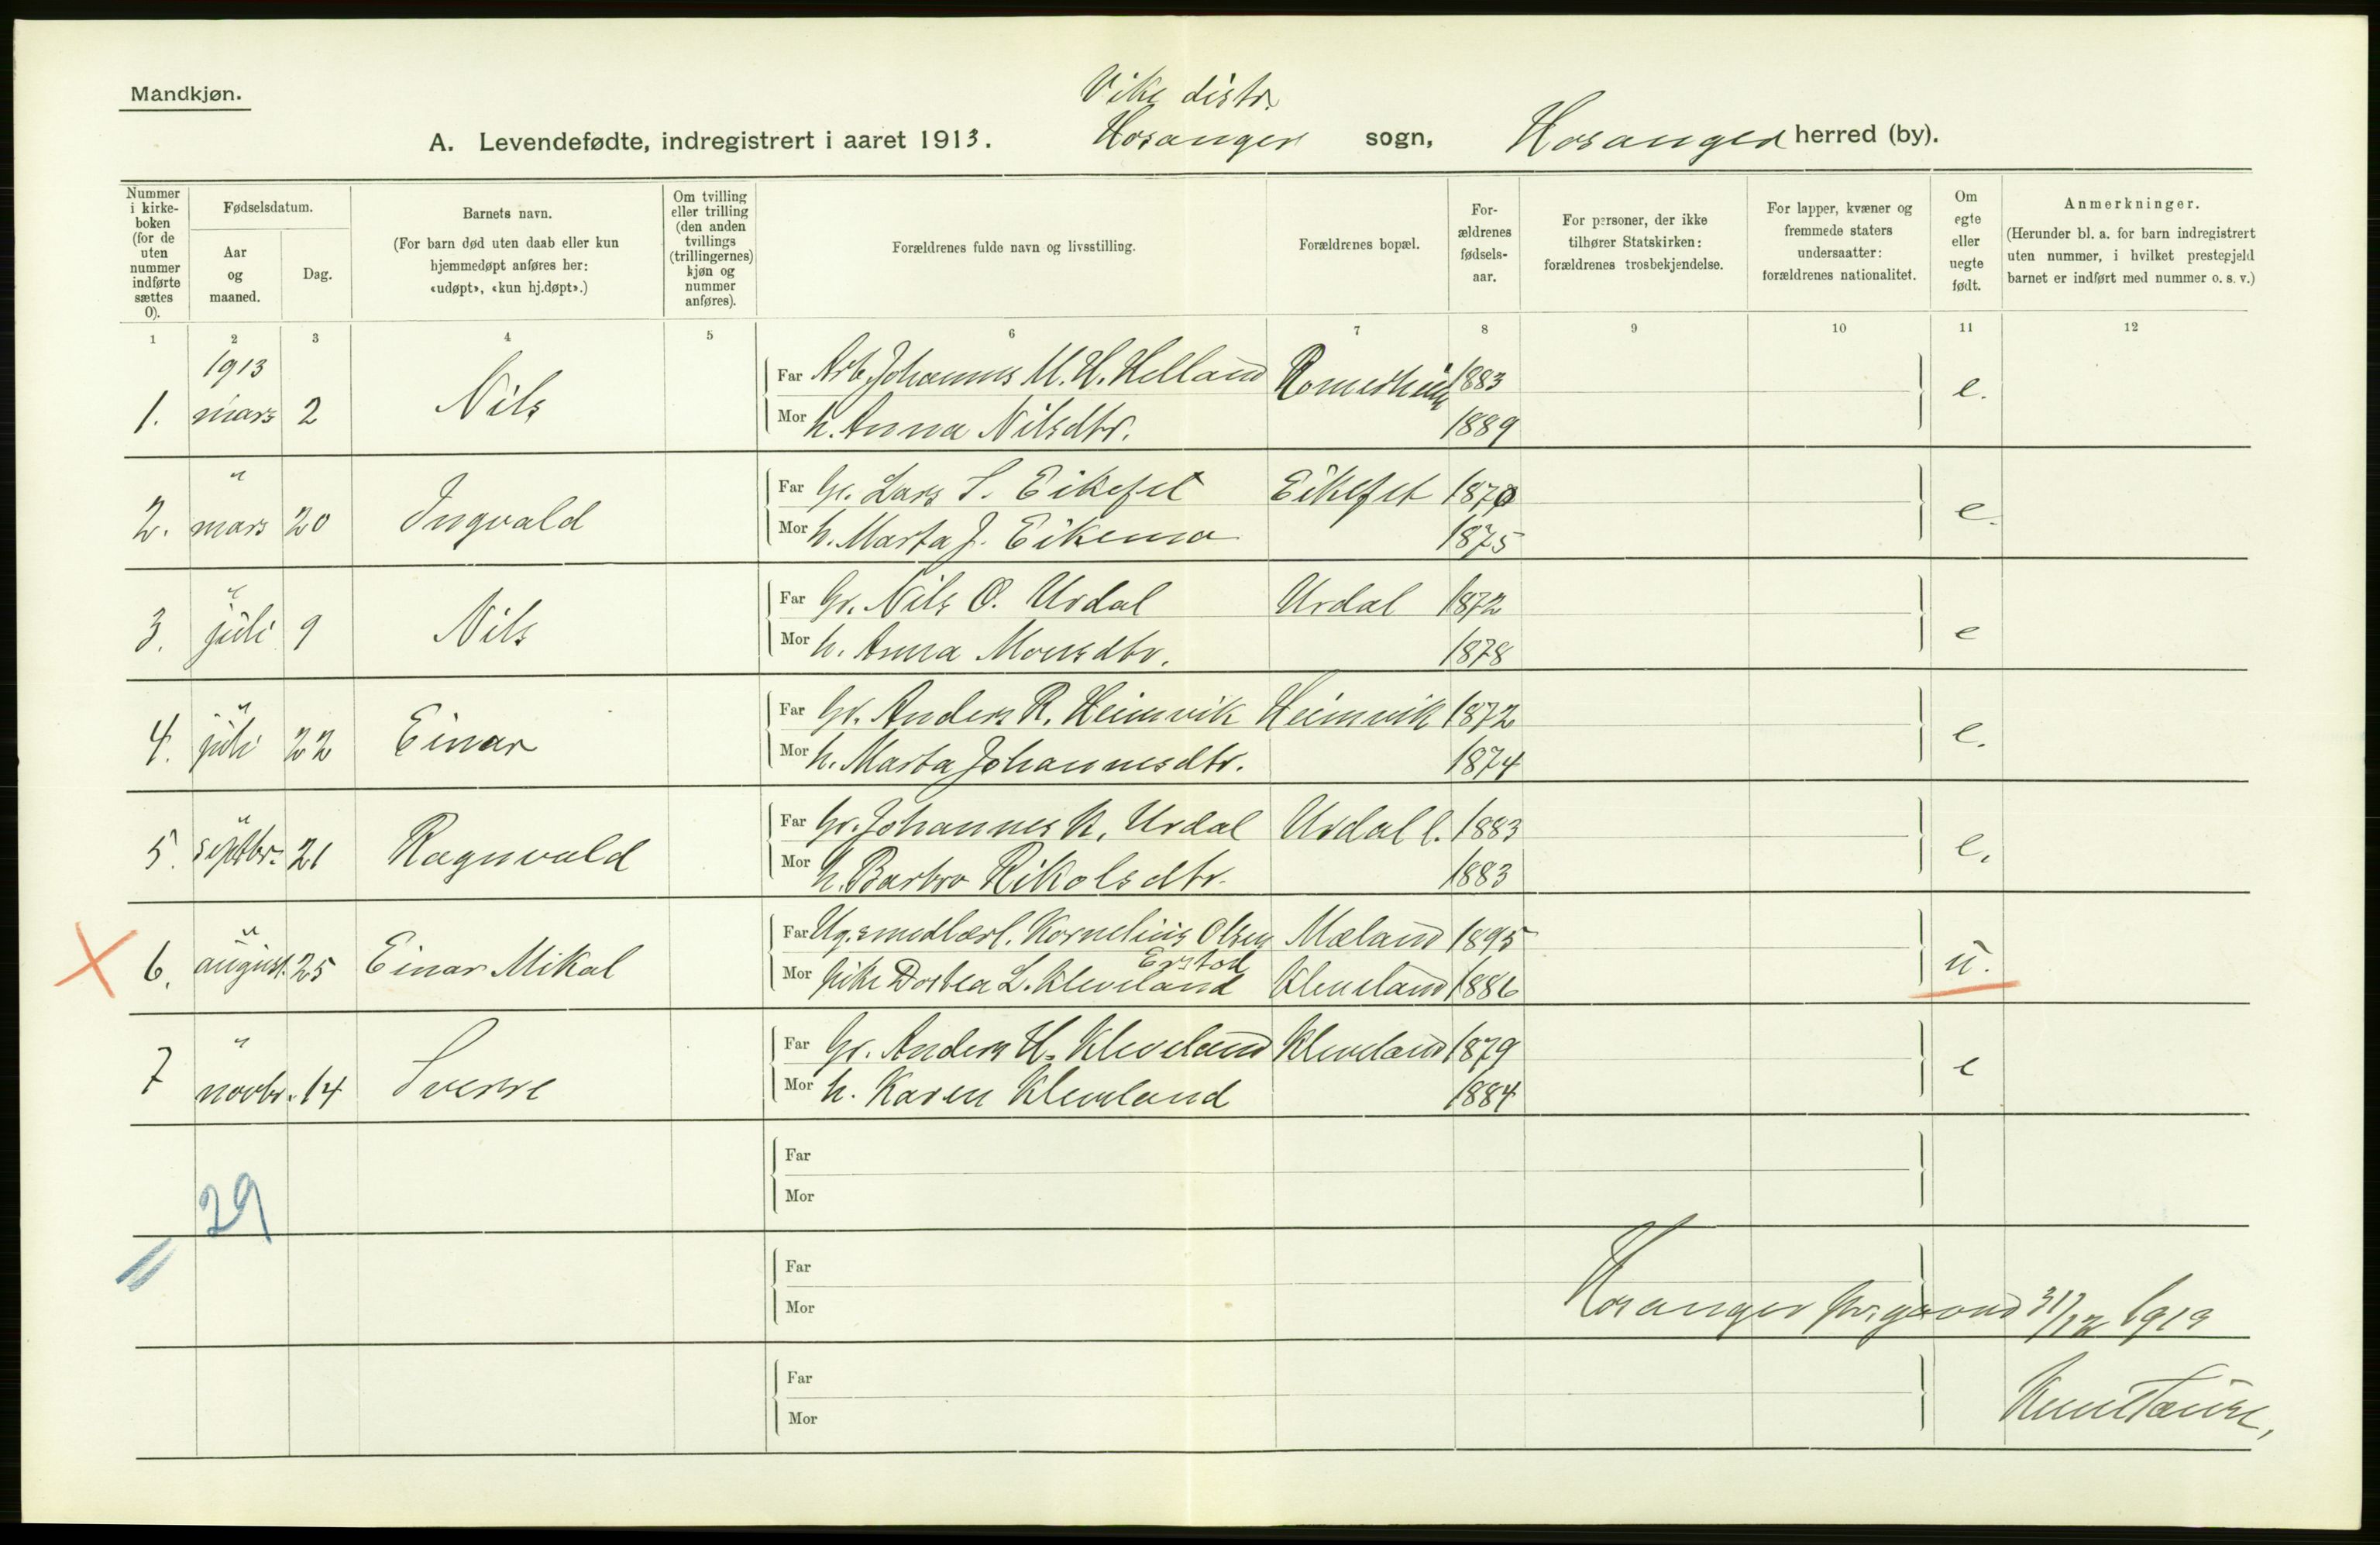 Mandkjøn.
Vike distr.
A. Levendefødte, indregistrert i aaret 1913. Hosanger sogn, Hosanger herred (by).
Nummer i kirke-boken (for de uten nummer indførte sættes 0).
Fødselsdatum.
Aar og maaned.
Dag.
Barnets navn.
(For barn død uten daab eller kun hjemmedøpt anføres her: «udøpt», «kun hj.døpt».)
Om tvilling eller trilling (den anden tvillings (trillingernes) kjøn og nummer anføres).
Forældrenes fulde navn og livsstilling.
Forældrenes bopæl.
For-ældrenes fødsels-aar.
For personer, der ikke tilhører Statskirken: forældrenes trosbekjendelse.
For lapper, kvæner og fremmede staters undersaatter: forældrenes nationalitet.
Om egte eller uegte født.
Anmerkninger.
(Herunder bl. a. for barn indregistrert uten nummer, i hvilket prestegjeld barnet er indført med nummer o. s. v.)
1 2 3 4 5 6 7 8 9 10 11 12
1913
Far Arb. Johannes M. H. Helland Romerheim 1883
1. mars 2 Nils e.
Mor h. Anna Nilsdtr. 1889
"
Far Gr. Lars S. Eikefet Eikefet 1870
2. mars 20 Ingvald e.
Mor h. Marta J. Eikemo 1875
"
Far Gr. Nils O. Urdal Urdal 1872
3. juli 9 Nils e
Mor h. Anna Monsdtr. 1878
"
Far Gr. Anders R. Heimvik Heimvik 1872
4. juli 22 Einar e.
Mor h. Marta Johannesdtr. 1874
"
Far Gr. Johannes K. Urdal Urdal l. 1883
5. septbr. 21 Ragnvald e.
Mor h. Barbro Rikolsdtr. 1883
"
Far Ug. smedlærl. Kornelius Olsen Mæland 1895
6. august. 25 Einar Mikal u.
Mor pike Dortea L. Kleveland Kleveland 1886
"
Far Gr. Anders H. Kleveland Kleveland 1879
7 novbr. 14 Sverre e
Mor h. Karen Kleveland 1884
Far
Mor
29
Far
Mor
Hosanger prgaard 31/12 1913
Far
Mor